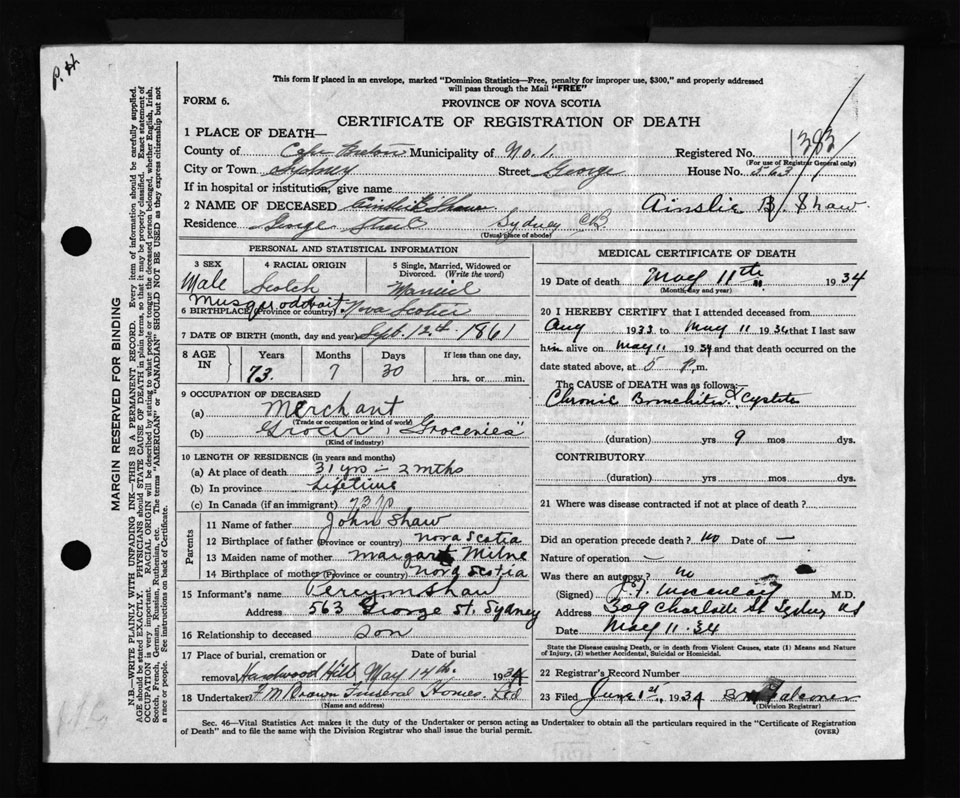 P. H.
This form if placed in an envelope, marked "Dominion Statistics—Free, penalty for improper use, $300," and properly addressed
will pass through the Mail "FREE"
FORM 6.
PROVINCE OF NOVA SCOTIA
CERTIFICATE OF REGISTRATION OF DEATH
1 PLACE OF DEATH—
County of Cape Breton Municipality of No. 1. Registered No. 1383
(For use of Registrar General only)
City or Town Sydney Street George House No. 563
If in hospital or institution, give name
2 NAME OF DECEASED Ainslie B. Shaw Ainslie B. Shaw.
Residence George Street Sydney C.B.
(Usual place of abode)
PERSONAL AND STATISTICAL INFORMATION
3 SEX 4 RACIAL ORIGIN 5 Single, Married, Widowed or Divorced. (Write the word)
Male Scotch Married
6 BIRTHPLACE (Province or country) Musquodoboit Nova Scotia
7 DATE OF BIRTH (month, day and year) Sept. 12th. 1861
8 AGE IN Years Months Days If less than one day,
73. 7 30 hrs. or min.
9 OCCUPATION OF DECEASED
(a) Merchant
(Trade or occupation or kind of work)
(b) Grocer "Groceries"
(Kind of industry)
10 LENGTH OF RESIDENCE (in years and months)
(a) At place of death 31 yrs - 2 mths
(b) In province Lifetime
(c) In Canada (if an immigrant) 73
Parents
11 Name of father John Shaw
12 Birthplace of father (Province or country) Nova Scotia
13 Maiden name of mother Margaret Milne
14 Birthplace of mother (Province or country) Nova Scotia
15 Informant's name Percy M Shaw
Address 563 George St. Sydney
16 Relationship to deceased son
17 Place of burial, cremation or removal Date of burial
Hardwood Hill May 14th. 1934
18 Undertaker F. M. Brown Funeral Homes Ltd
(Name and address)
MEDICAL CERTIFICATE OF DEATH
19 Date of death May 11th 1934
(Month, day and year)
20 I HEREBY CERTIFY that I attended deceased from
Aug 1933 to May 11 1934 that I last saw
him alive on May 11 1934 and that death occurred on the
date stated above, at 5 P.m.
The CAUSE OF DEATH was as follows:
Chronic Bronchitis & Cystitis
(duration) yrs 9 mos dys.
CONTRIBUTORY
(duration) yrs mos dys.
21 Where was disease contracted if not at place of death?
Did an operation precede death? no Date of —
Nature of operation —
Was there an autopsy? no
(Signed) M.D.
Address 309 Charlotte St Sydney NS
Date May 11. 34
State the Disease causing Death, or in death from Violent Causes, state (1) Means and Nature
of Injury, (2) whether Accidental, Suicidal or Homicidal.
22 Registrar's Record Number
23 Filed June 1st, 1934 Falconer
(Division Registrar)
Sec. 46—Vital Statistics Act makes it the duty of the Undertaker or person acting as Undertaker to obtain all the particulars required in the "Certificate of Registration
of Death" and to file the same with the Division Registrar who shall issue the burial permit.
(OVER)
MARGIN RESERVED FOR BINDING
N.B.—WRITE PLAINLY WITH UNFADING INK—THIS IS A PERMANENT RECORD. Every item of information should be carefully supplied.
AGE should be stated EXACTLY. PHYSICIANS should STATE CAUSE OF DEATH in plain terms, so that it may be properly classified. Exact statement of
OCCUPATION is very important. RACIAL ORIGIN will be described by stating to what people or tongue the deceased person belonged, whether English, Irish,
Scotch, French, German, Russian, Ruthenian, etc. The terms "AMERICAN" or "CANADIAN" SHOULD NOT BE USED as they express citizenship but not
a race or people. See instructions on back of Certificate.